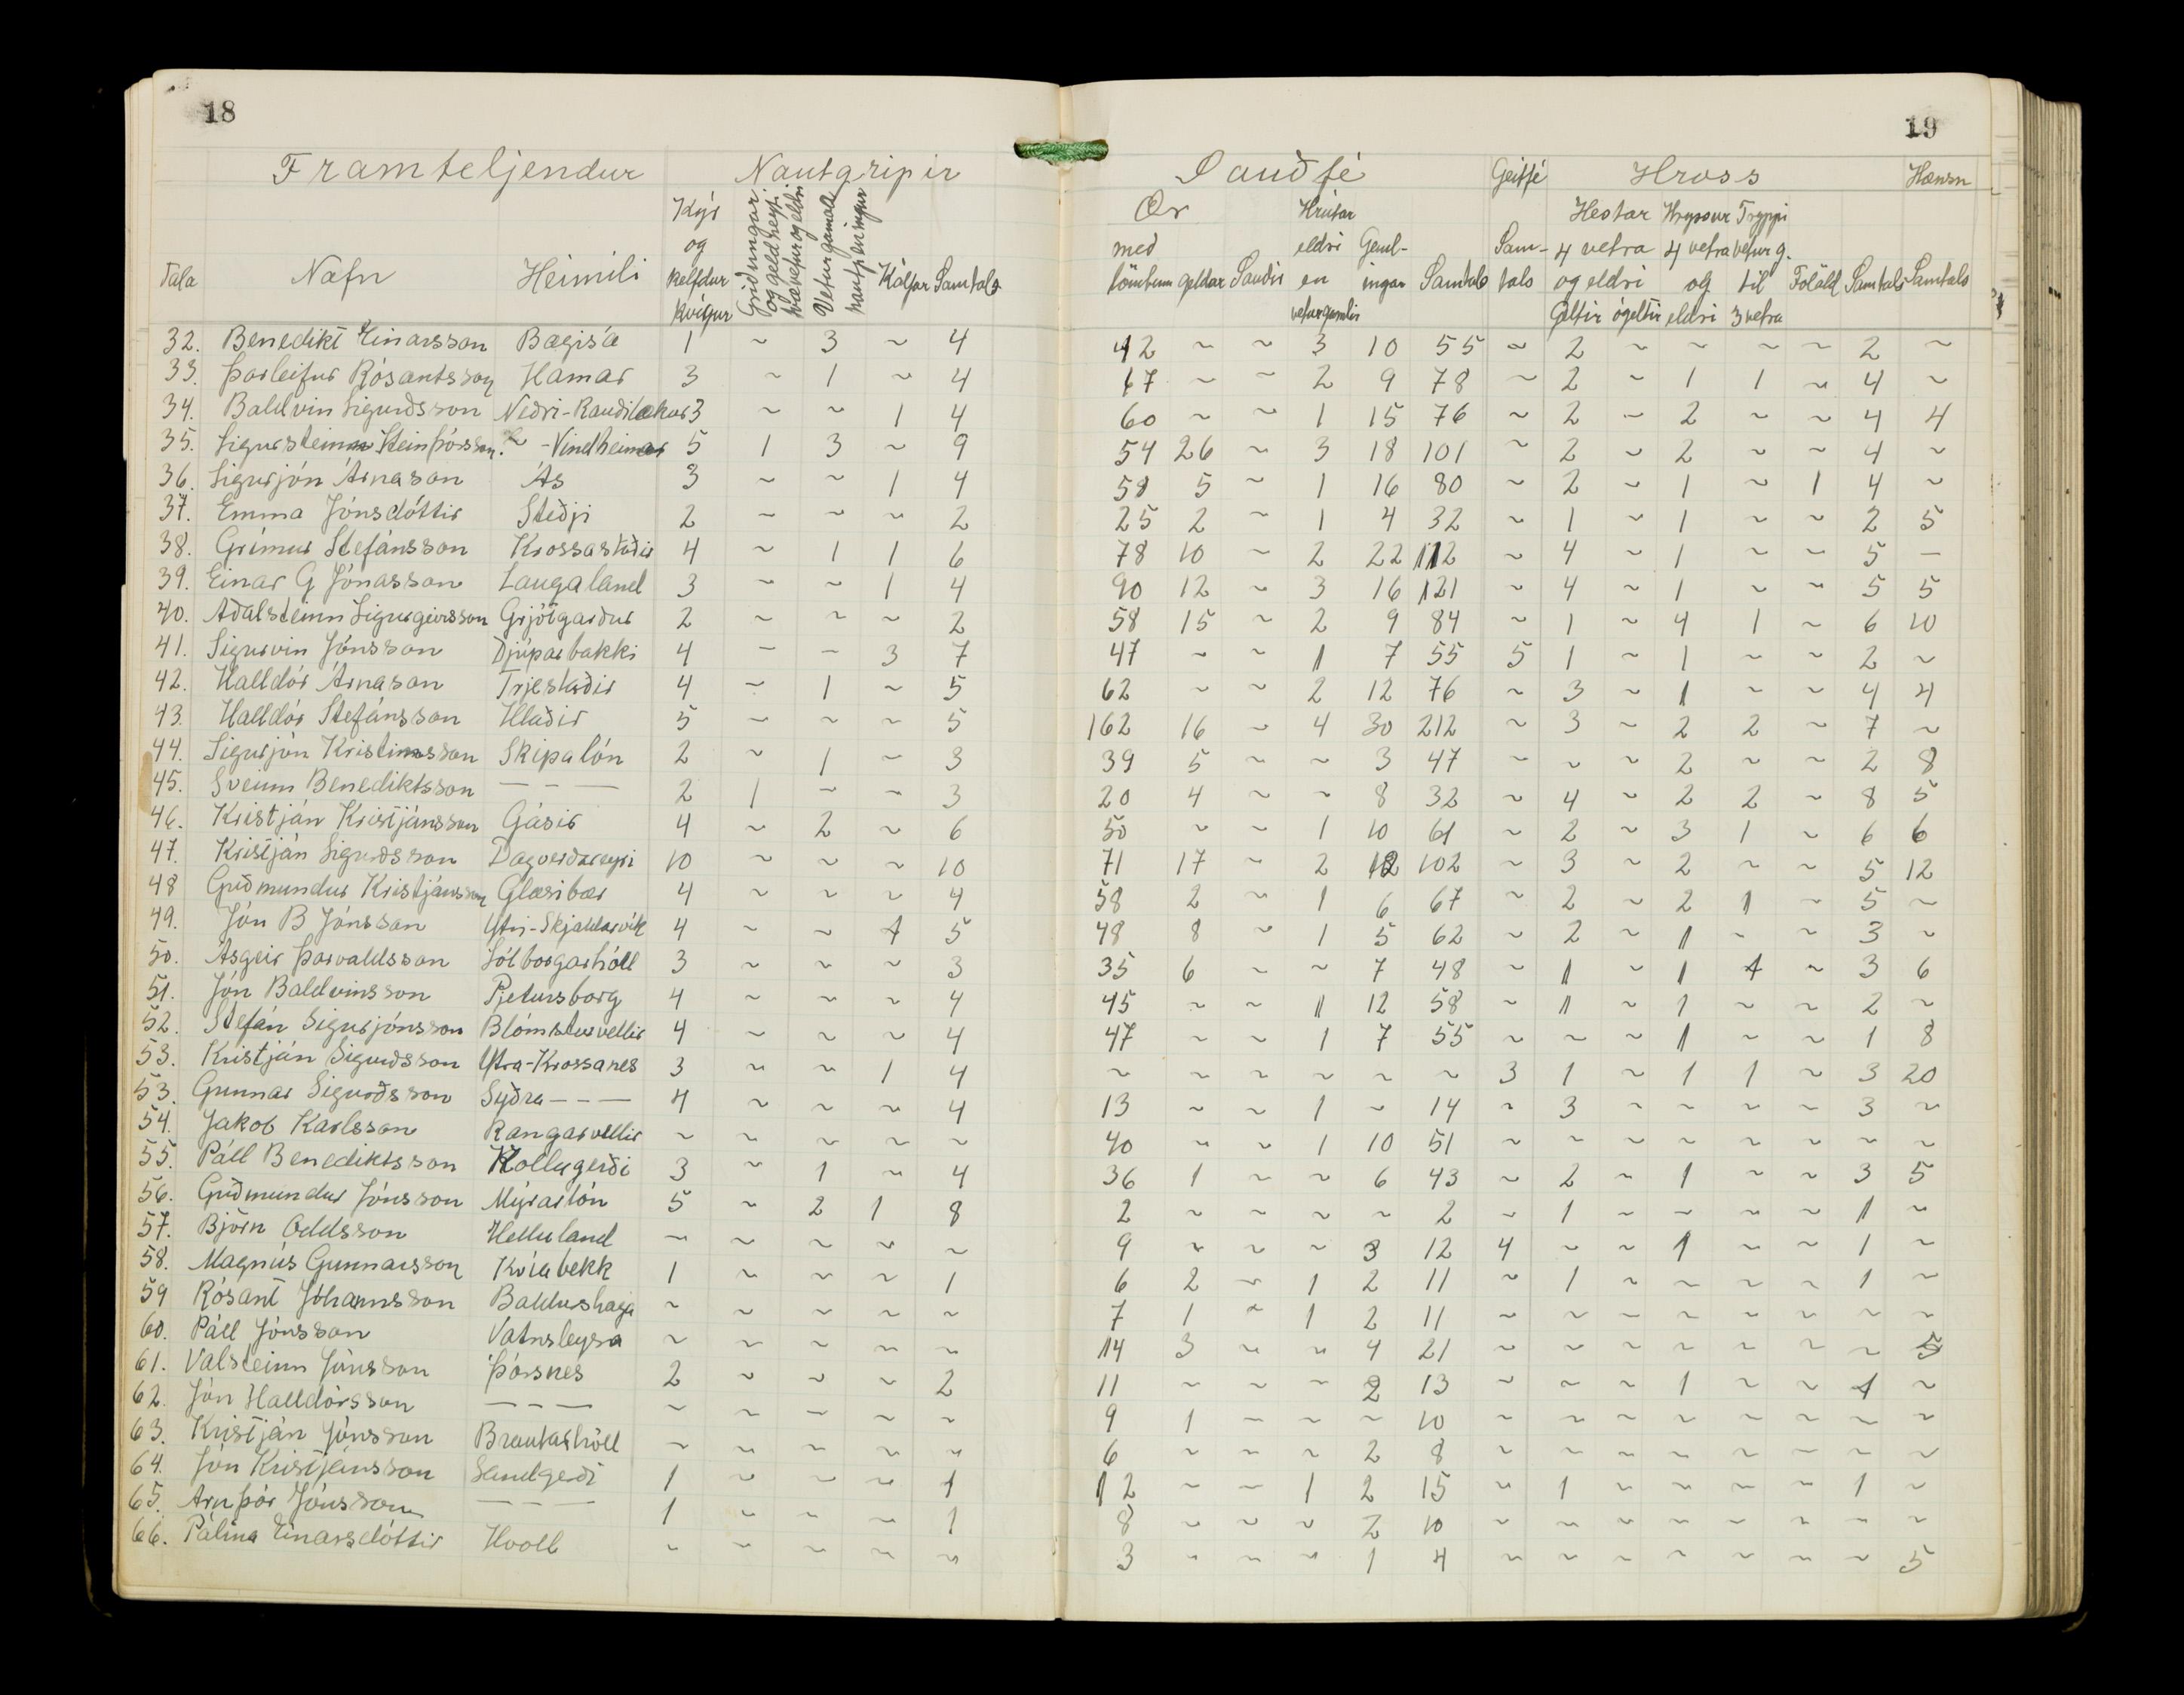 18
19
Framteljendur Nautgripir
Sauðfé Geitfé Hross Hænsn
Tala Nafn Heimili
Kýr og kelfdar kvígur
Griðungar og geldneyti tvævetur og eldri
Veturgamall nautpeningur
Kálfar Samtals
Ær með lömbum geldar Sauðir
Hrútar eldri en veturgamlir
Geml-ingar Samtals
Sam-tals
Hestar 4 vetra og eldri Geltir ógeltir
Hryssur 4 vetra og eldri
Tryppi veturg. til 3 vetra
Folöld Samtals Samtals
32. Benedikt Einarsson Bægisá 1 ~ 3 ~ 4 42 ~ ~ 3 10 55 ~ 2 ~ ~ ~ ~ 2 ~
33. Þorleifur Rósantsson Hamar 3 ~ 1 ~ 4 67 ~ ~ 2 9 78 ~ 2 ~ 1 1 ~ 4 ~
34. Baldvin Sigurðsson Neðri-Rauðilækur 3 ~ ~ 1 4 60 ~ ~ 1 15 76 ~ 2 ~ 2 ~ ~ 4 4
35. Sigursteinn Steinþórsson ~ -Vindheimar 5 1 3 ~ 9 54 26 ~ 3 18 101 ~ 2 ~ 2 ~ ~ 4 ~
36. Sigurjón Árnason Ás 3 ~ ~ 1 4 58 5 ~ 1 16 80 ~ 2 ~ 1 ~ 1 4 ~
37. Emma Jónsdóttir Steðji 2 ~ ~ ~ 2 25 2 ~ 1 4 32 ~ 1 ~ 1 ~ ~ 2 5
38. Grímur Stefánsson Krossastaðir 4 ~ 1 1 6 78 10 ~ 2 22 112 ~ 4 ~ 1 ~ ~ 5 —
39. Einar G Jónasson Laugaland 3 ~ ~ 1 4 90 12 ~ 3 16 121 ~ 4 ~ 1 ~ ~ 5 5
40. Aðalsteinn Sigurgeirsson Grjótgarður 2 ~ ~ ~ 2 58 15 ~ 2 9 84 ~ 1 ~ 4 1 ~ 6 10
41. Sigurvin Jónsson Djúparbakki 4 ~ ~ 3 7 47 ~ ~ 1 7 55 5 1 ~ 1 ~ ~ 2 ~
42. Halldór Árnason Trjestaðir 4 ~ 1 ~ 5 62 ~ ~ 2 12 76 ~ 3 ~ 1 ~ ~ 4 4
43. Halldór Stefánsson Hlaðir 5 ~ ~ ~ 5 162 16 ~ 4 30 212 ~ 3 ~ 2 2 ~ 7 ~
44. Sigurjón Kristinsson Skipalón 2 ~ 1 ~ 3 39 5 ~ ~ 3 47 ~ ~ ~ 2 ~ ~ 2 8
45. Sveinn Benediktsson — — — 2 1 ~ ~ 3 20 4 ~ ~ 8 32 ~ 4 ~ 2 2 ~ 8 5
46. Kristján Kristjánsson Gásir 4 ~ 2 ~ 6 50 ~ ~ 1 10 61 ~ 2 ~ 3 1 ~ 6 6
47. Kristján Sigurðsson Dagverðareyri 10 ~ ~ ~ 10 71 17 ~ 2 12 102 ~ 3 ~ 2 ~ ~ 5 12
48 Guðmundur Kristjánsson Glæsibær 4 ~ ~ ~ 4 58 2 ~ 1 6 67 ~ 2 ~ 2 1 ~ 5 ~
49. Jón B Jónsson Ytri-Skjaldarvík 4 ~ ~ 1 5 48 8 ~ 1 5 62 ~ 2 ~ 1 ~ ~ 3 ~
50. Ásgeir Þorvaldsson Sólborgarhóll 3 ~ ~ ~ 3 35 6 ~ ~ 7 48 ~ 1 ~ 1 1 ~ 3 6
51. Jón Baldvinsson Pjetursborg 4 ~ ~ ~ 4 45 ~ ~ 1 12 58 ~ 1 ~ 1 ~ ~ 2 ~
52. Stefán Sigurjónsson Blómsturvellir 4 ~ ~ ~ 4 47 ~ ~ 1 7 55 ~ ~ ~ 1 ~ ~ 1 8
53. Kristján Sigurðsson Ytra-Krossanes 3 ~ ~ 1 4 ~ ~ ~ ~ ~ ~ 3 1 ~ 1 1 ~ 3 20
53. Gunnar Sigurðsson Syðra — — — 4 ~ ~ ~ 4 13 ~ ~ 1 ~ 14 ~ 3 ~ ~ ~ ~ 3 ~
54. Jakob Karlsson Rangárvellir ~ ~ ~ ~ ~ 40 ~ ~ 1 10 51 ~ ~ ~ ~ ~ ~ ~ ~
55. Páll Benediktsson Kollugerði 3 ~ 1 ~ 4 36 1 ~ ~ 6 43 ~ 2 ~ 1 ~ ~ 3 5
56. Guðmundur Jónsson Mýrarlón 5 ~ 2 1 8 2 ~ ~ ~ ~ 2 ~ 1 ~ ~ ~ ~ 1 ~
57. Björn Oddsson Helluland ~ ~ ~ ~ ~ 9 ~ ~ ~ 3 12 4 ~ ~ 1 ~ ~ 1 ~
58. Magnús Gunnarsson Kvíabekk 1 ~ ~ ~ 1 6 2 ~ 1 2 11 ~ 1 ~ ~ ~ ~ 1 ~
59 Rósant Jóhannsson Baldurshaga ~ ~ ~ ~ ~ 7 1 ~ 1 2 11 ~ ~ ~ ~ ~ ~ ~ ~
60. Páll Jónsson Vatnsleysa ~ ~ ~ ~ ~ 14 3 ~ ~ 4 21 ~ ~ ~ ~ ~ ~ ~ 5
61. Valsteinn Jónsson Þórsnes 2 ~ ~ ~ 2 11 ~ ~ ~ 2 13 ~ ~ ~ 1 ~ ~ 1 ~
62. Jón Halldórsson — — — ~ ~ ~ ~ ~ 9 1 ~ ~ ~ 10 ~ ~ ~ ~ ~ ~ ~ ~
63. Kristján Jónsson Brautarhóll ~ ~ ~ ~ ~ 6 ~ ~ ~ 2 8 ~ ~ ~ ~ ~ ~ ~ ~
64. Jón Kristjánsson Sandgerði 1 ~ ~ ~ 1 12 ~ ~ 1 2 15 ~ 1 ~ ~ ~ ~ 1 ~
65. Arnþór Jónsson — — — 1 ~ ~ ~ 1 8 ~ ~ ~ 2 10 ~ ~ ~ ~ ~ ~ ~ ~
66. Pálína Einarsdóttir Hvoll ~ ~ ~ ~ ~ 3 ~ ~ ~ 1 4 ~ ~ ~ ~ ~ ~ ~ 5